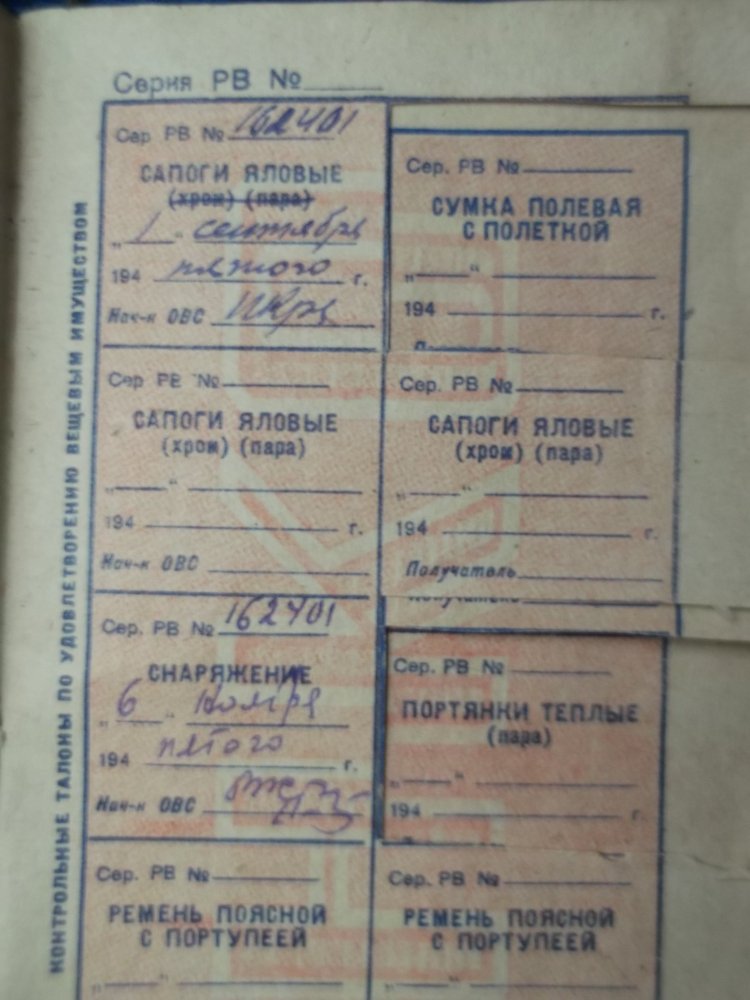 КОНТРОЛЬНЫЕ ТАЛОНЫ ПО УДОВЛЕТВОРЕНИЮ ВЕЩЕВЫМ ИМУЩЕСТВОМ
Серия РВ №
Сер РВ № 162401
САПОГИ ЯЛОВЫЕ
(хром) (пара)
„1“ сентября
194 пятого г.
Нач-к ОВС
Сер РВ №
САПОГИ ЯЛОВЫЕ
(хром) (пара)
„ “
194 г.
Нач-к ОВС
Сер. РВ № 162401
СНАРЯЖЕНИЕ
„6“ ноября
194 пятого г.
Нач-к ОВС
Сер. РВ №
РЕМЕНЬ ПОЯСНОЙ
С ПОРТУПЕЕЙ
„ “
Сер. РВ №
СУМКА ПОЛЕВАЯ
С ПОЛЕТКОЙ
„ “
194 г.
Сер. РВ №
САПОГИ ЯЛОВЫЕ
(хром) (пара)
„ “
194 г.
Получатель
Сер. РВ №
ПОРТЯНКИ ТЕПЛЫЕ
(пара)
„ “
194 г.
Сер. РВ №
РЕМЕНЬ ПОЯСНОЙ
С ПОРТУПЕЕЙ
„ “